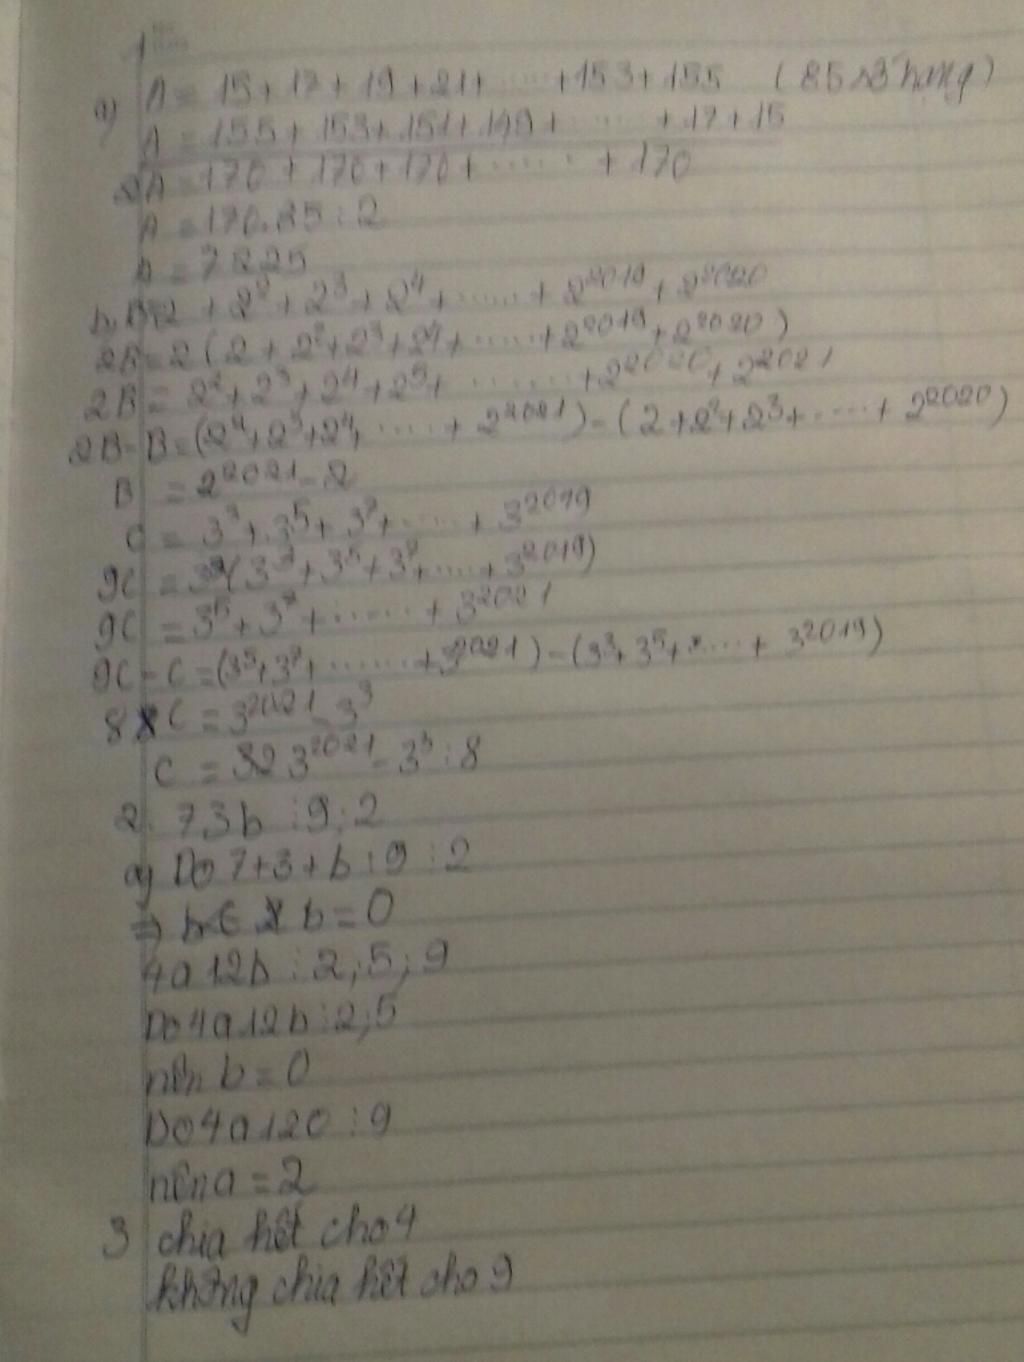 1
a) A = 15 + 17 + 19 + 21 + ..... + 153 + 155 (85 số hạng)
A = 155 + 153 + 151 + 149 + ...... + 17 + 15
2A = 170 + 170 + 170 + ...... + 170
A = 170.85 : 2
A = 7225
b, B = 2 + 2² + 2³ + 2⁴ + ...... + 2²⁰¹⁹ + 2²⁰²⁰
2B = 2(2 + 2² + 2³ + 2⁴ + ...... + 2²⁰¹⁹ + 2²⁰²⁰)
2B = 2² + 2³ + 2⁴ + 2⁵ + ........ + 2²⁰²⁰ + 2²⁰²¹
2B - B = (2² + 2³ + 2⁴ + ..... + 2²⁰²¹) - (2 + 2² + 2³ + ..... + 2²⁰²⁰)
B = 2²⁰²¹ - 2
C = 3³ + 3⁵ + 3⁷ + ..... + 3²⁰¹⁹
9C = 3²(3³ + 3⁵ + 3⁷ + ..... + 3²⁰¹⁹)
9C = 3⁵ + 3⁷ + ...... + 3²⁰²¹
9C - C = (3⁵ + 3⁷ + ....... + 3²⁰²¹) - (3³ + 3⁵ + ..... + 3²⁰¹⁹)
8 C = 3²⁰²¹ - 3³
C = 3²⁰²¹ - 3³ : 8
2. 73b ⋮ 9 ; 2
a) Do 7 + 3 + b ⋮ 9 ⋮ 2
⇒ b = 0
4a12b ⋮ 2 ; 5 ; 9
Do 4a12b ⋮ 2 ; 5
nên b = 0
Do 4a120 ⋮ 9
nên a = 2
3 chia hết cho 4
không chia hết cho 9